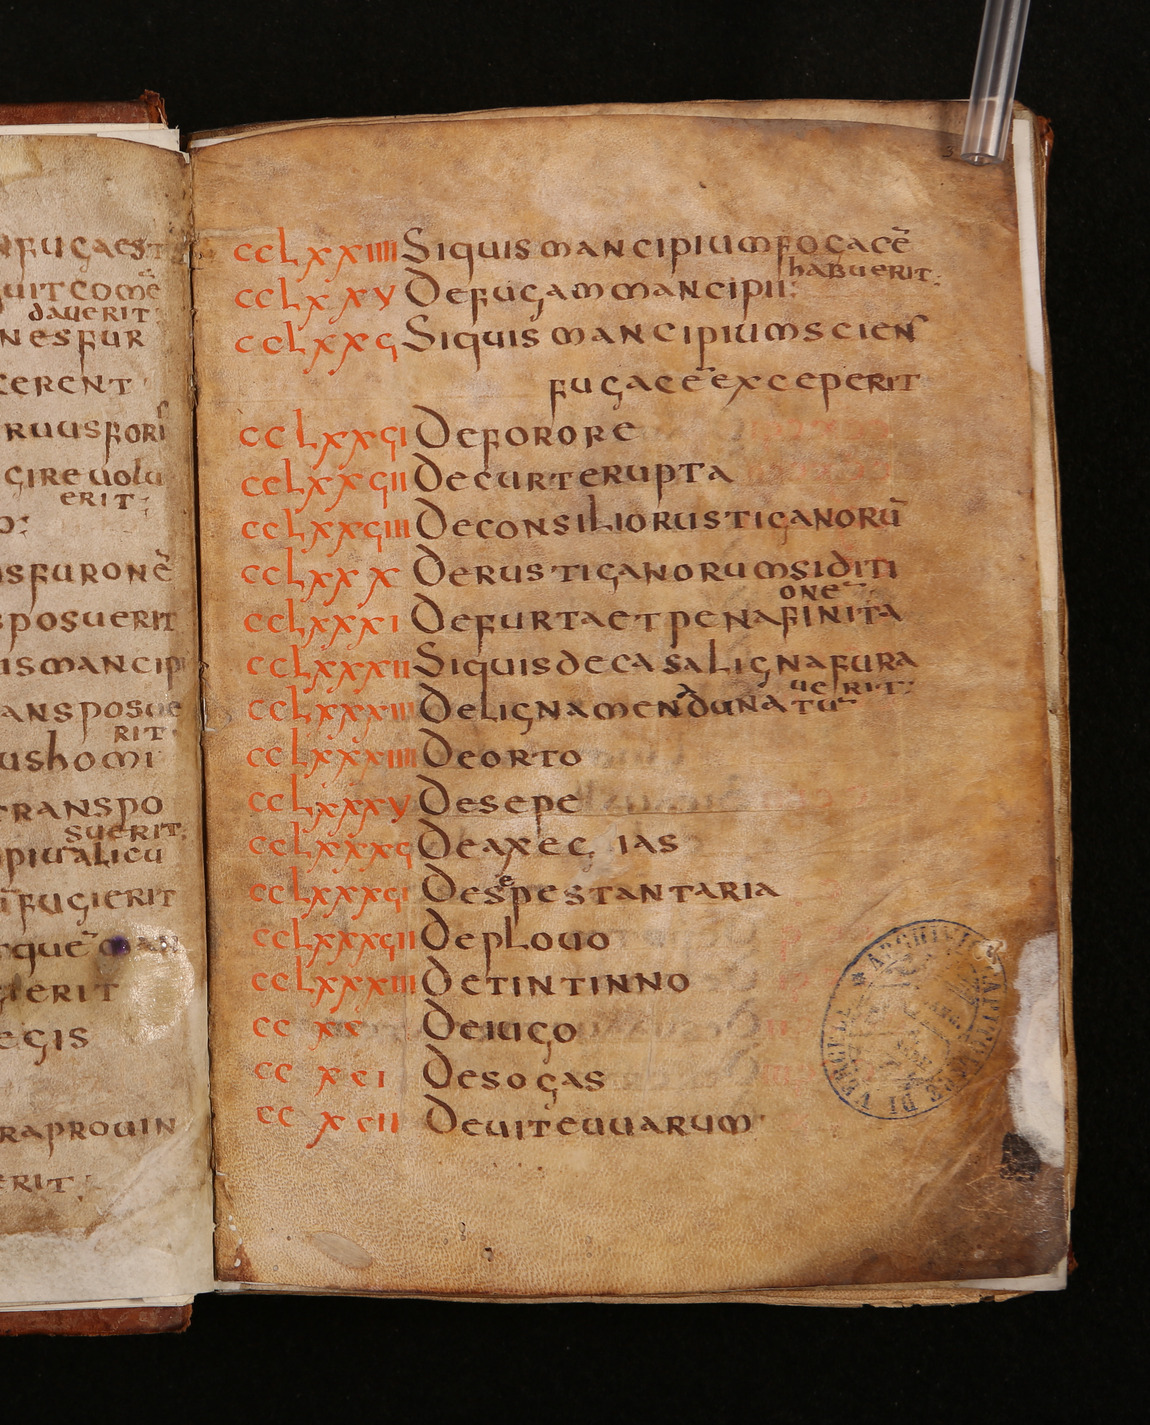 NFUGAEST
UITCOMĒ
DAUERIT
NESFUR
CERENT
RUUSFORI
GIREUOLU
ERIT
SFURONĒ
POSUERIT
ISMANCIPI
ANSPOSUE
RIT
USHOMI
TRANSPO
SUERIT
PIUALICU
FUGIERIT
RQUĒ
GIERIT
EGIS
RAPROUIN
ERIT
CCLXXIIII SIQUISMANCIPIUMFOGACĒ
HABUERIT
CCLXXV DEFUGAMMANCIPII
CCLXXϛ SIQUISMANCIPIUMSCIENS
FUGACĒEXCEPERIT
CCLXXϛI DEFORORE
CCLXXϛII DECURTERUPTA
CCLXXϛIII DECONSILIORUSTIGANORŪ
CCLXXX DERUSTIGANORUMSIDITI
ONE
CCLXXXI DEFURTAETPENAFINITA
CCLXXXII SIQUISDECASALIGNAFURA
UERIT
CCLXXXIII DELIGNAMENADUNATU
CCLXXXIIII DEORTO
CCLXXXV DESEPE
CCLXXXϛ DEAXEGIAS
CCLXXXϛI DESEPESTANTARIA
CCLXXXϛII DEPLOUO
CCLXXXIII DETINTINNO
CC XX DEIUGO
CC XCI DESOGAS
CC XCII DEUITEUUARUM
ARCHIVIO CAPITOLARE DI VERCELLI